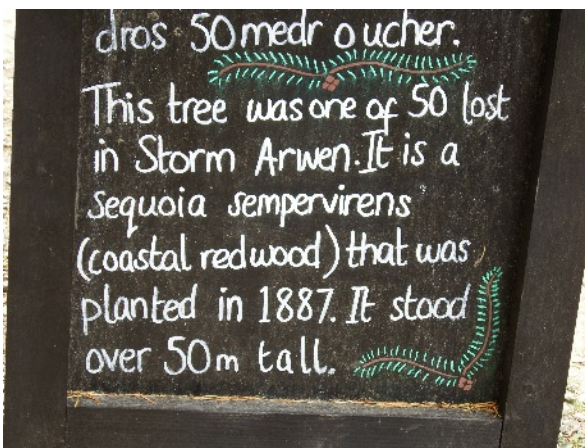 dros 50 medr o uchder.
This tree was one of 50 lost
in Storm Arwen. It is a
Sequoia sempervirens
(coastal redwood) that was
planted in 1887. It stood
over 50m tall.